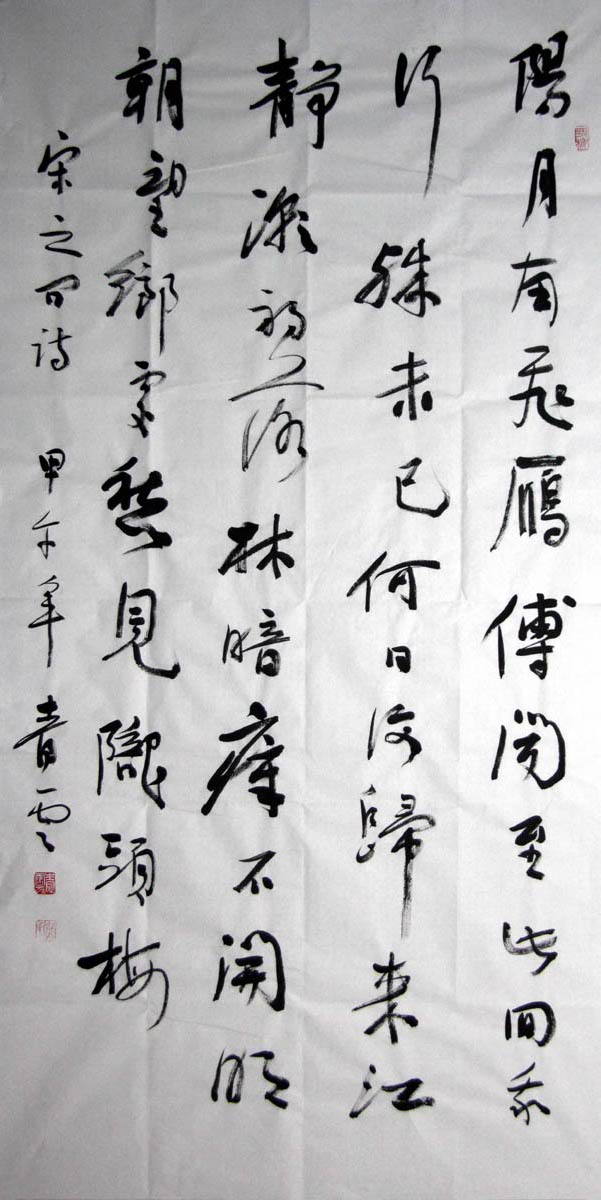 陽月南飛雁傳聞至此回我
行殊未已何日復歸來江
静潮初落林暗瘴不開明
朝望鄉處愁見隴頭梅
宋之问诗 甲午年 青雲